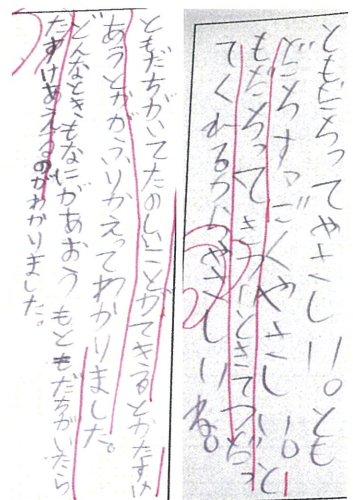 ともだちってやさしい。とも
だちすっごくやさしい。と
もだちってきついときてつだっ
てくれるからやさしいね。
ともだちがいてたのしいことができるとかたすけ
あうとかがふりかえってわかりました。
どんなときもなにがあおうもともだちがいたら
たすけあえるのがわかりました。